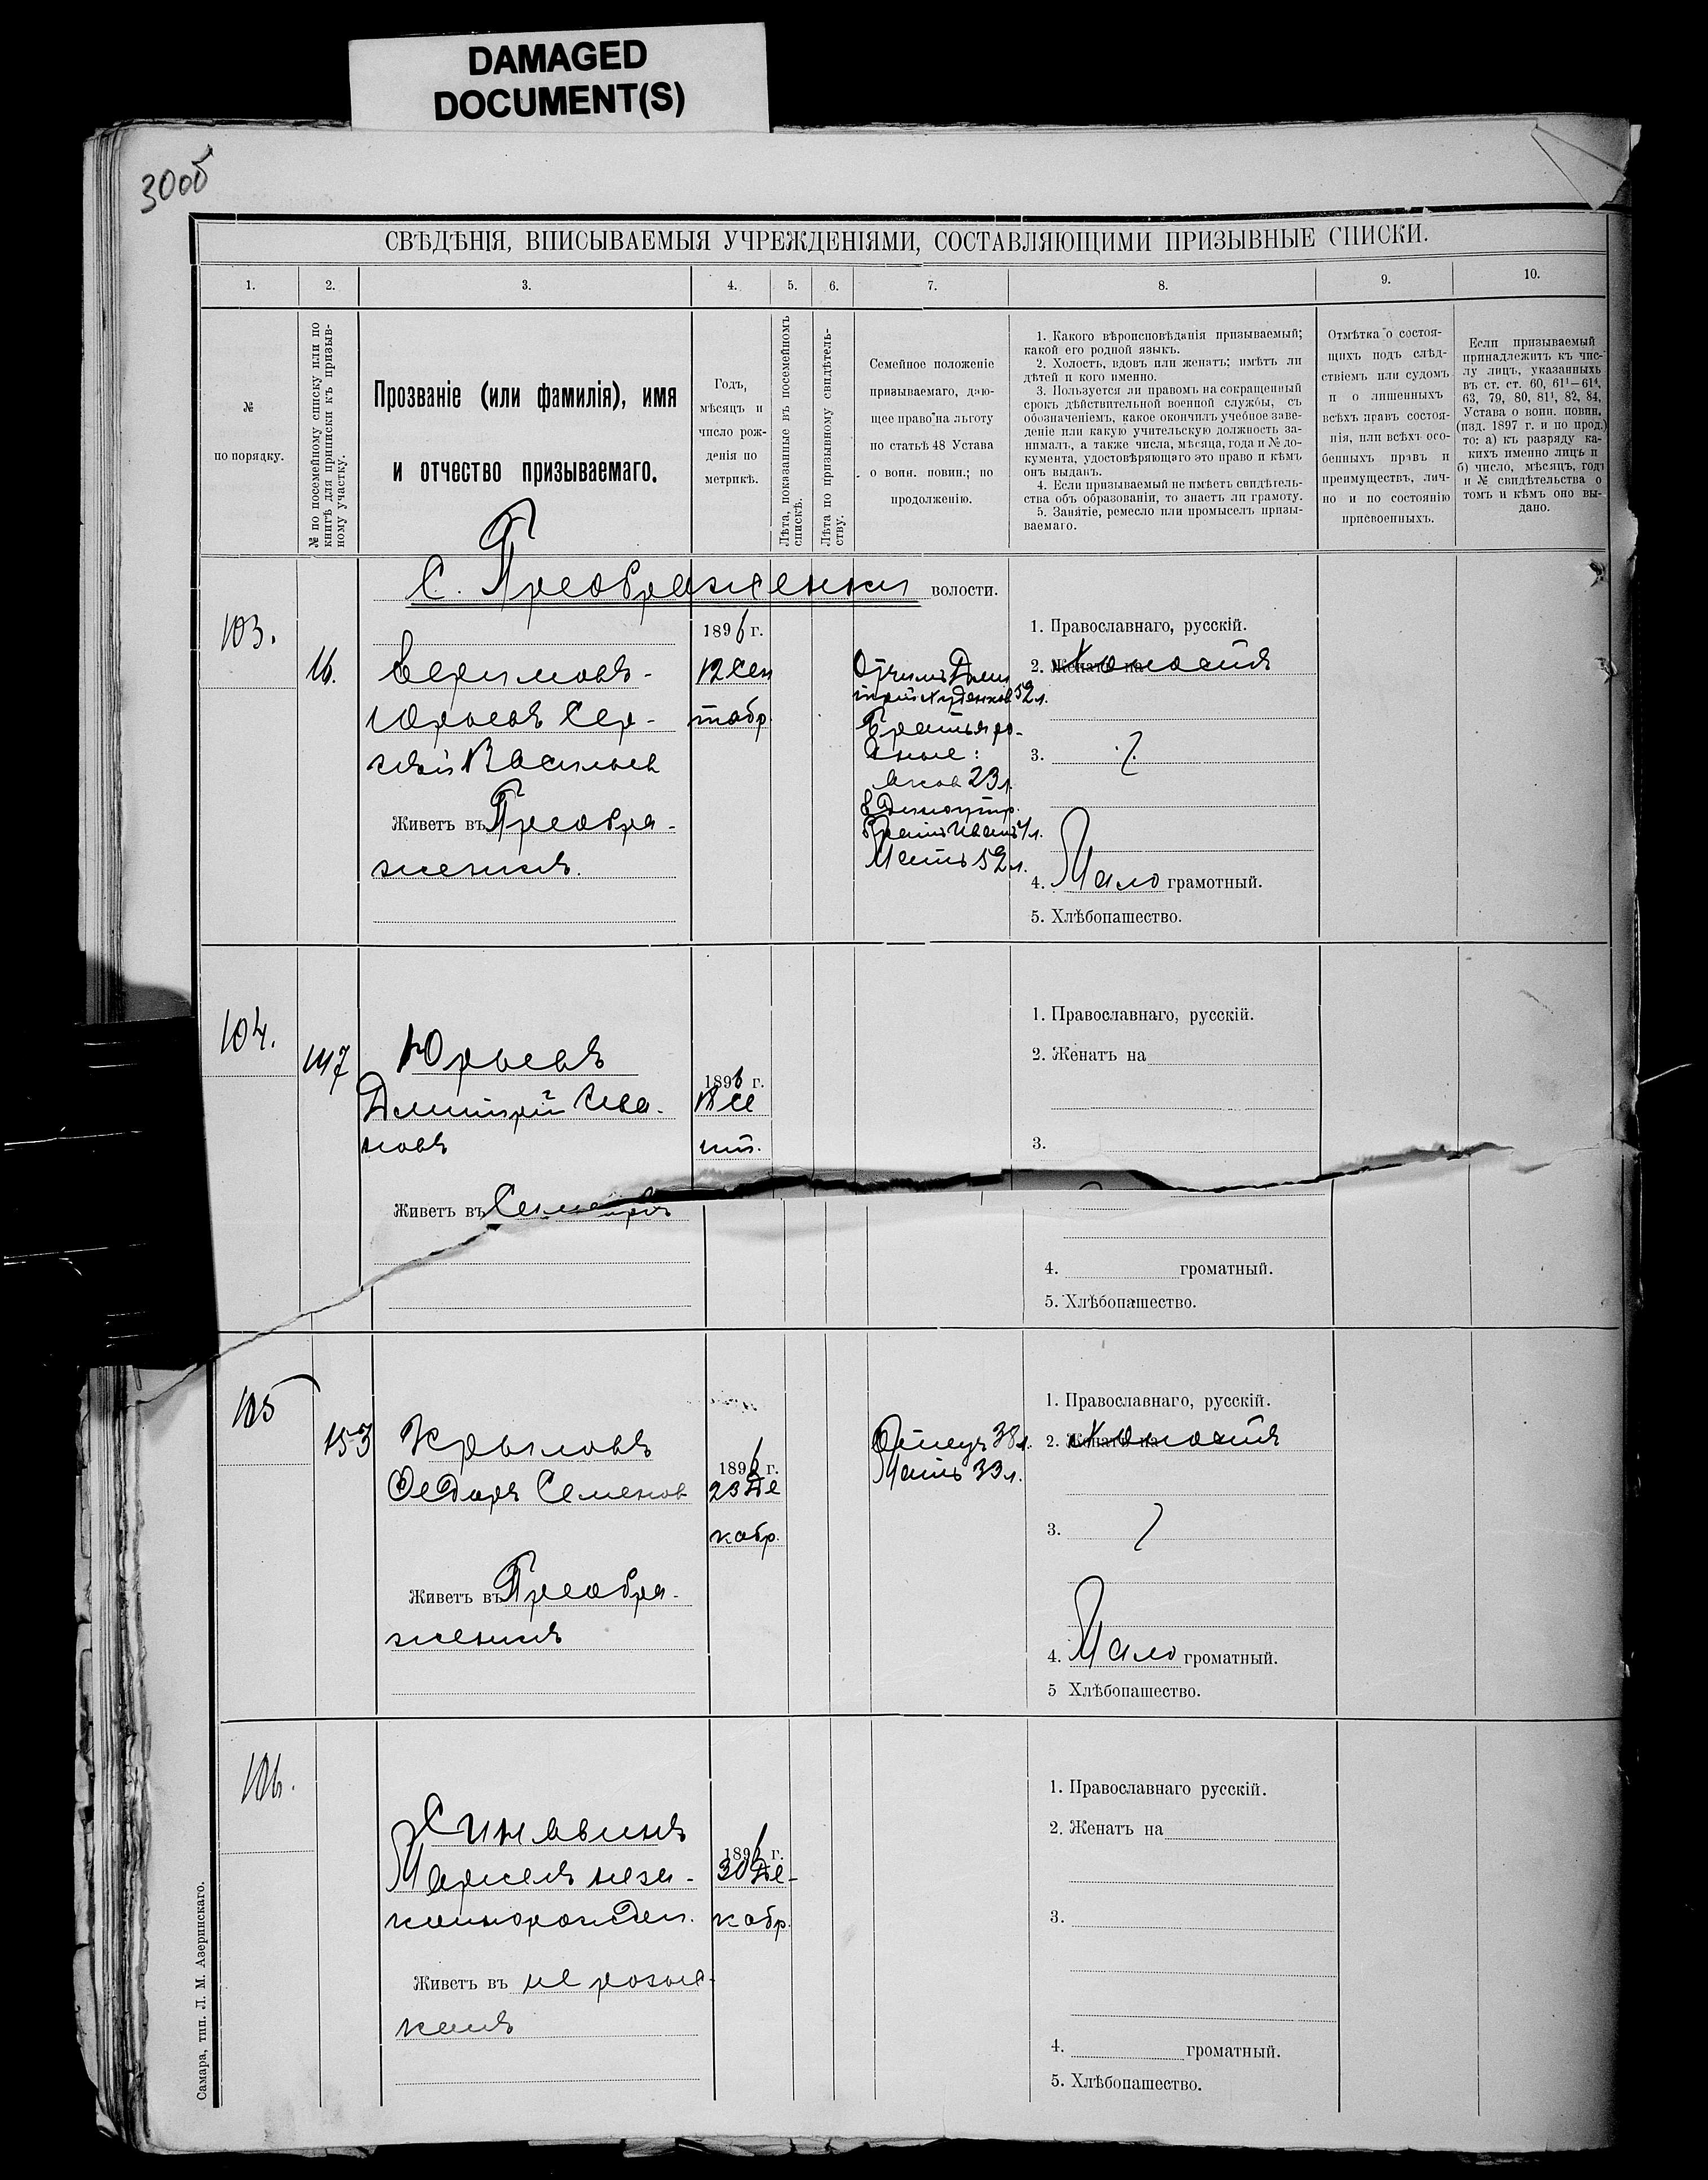 DAMAGED
DOCUMENT(S)
30об
СВѢДѢНІЯ, ВПИСЫВАЕМЫЯ УЧРЕЖДЕНІЯМИ, СОСТАВЛЯЮЩИМИ ПРИЗЫВНЫЕ СПИСКИ.
1. 2. 3. 4. 5. 6. 7. 8. 9. 10.
№
по порядку.
№ по посемейному списку или по
книгѣ для приписки къ призыв-
ному участку.
Прозваніе (или фамилія), имя
и отчество призываемаго.
Годъ,
мѣсяцъ и
число рож-
денія по
метрикѣ.
Лѣта, показанные въ посемейномъ
спискѣ.
Лѣта по призывному свидѣтель-
ству.
Семейное положеніе
призываемаго, даю-
щее право на льготу
по статьѣ 48 Устава
о воин. повин.; по
продолженію.
1. Какого вѣроисповѣданія призываемый;
какой его родной языкъ.
2. Холостъ, вдовъ или женатъ; имѣтъ ли
дѣтей и кого именно.
3. Пользуется ли правомъ на сокращенный
срокъ дѣйствительной военной службы, съ
обозначеніемъ, какое окончилъ учебное заве-
деніе или какую учительскую должность за-
нималъ, а также числа, мѣсяца, года и № до-
кумента, удостовѣряющаго это право и кѣмъ
онъ выданъ.
4. Если призываемый не имѣетъ свидѣтель-
ства объ образованіи, то знаетъ ли грамоту.
5. Занятіе, ремесло или промыселъ призы-
ваемаго.
Отмѣтка о состоя-
щихъ подъ слѣд-
ствіемъ или судомъ
и о лишенныхъ
всѣхъ правъ состоя-
нія, или всѣхъ осо-
бенныхъ правъ и
преимуществъ, лич-
но и по состоянію
присвоенныхъ.
Если призываемый
принадлежитъ къ чис-
лу лицъ, указанныхъ
въ ст. ст. 60, 61¹—61⁴,
63, 79, 80, 81¹, 82, 84,
Устава о воин. повин.
(изд. 1897 г. и по прод.)
то: а) къ разряду ка-
кихъ именно лицъ и
б) число, мѣсяцъ, годъ
и № свидѣтельства о
томъ и кѣмъ оно вы-
дано.
С. Преображенки волости.
103.
16.
Юрьевъ Сер-
гѣй Васильев
Живетъ въ Преобра-
женкѣ.
1896 г.
12 Сен
тябр.
Отчимъ Дми
52 л.
Братья ро-
дные:
Яков 23 л.
Братъ Иванъ
Мать 52 л.
1. Православнаго, русскій.
2. Женатъ на Холостъ
3.
4. Мало грамотный.
5. Хлѣбопашество.
104.
147
Юрьевъ
Дмитрій Ива-
новъ
Живетъ въ
1896 г.
1. Православнаго, русскій.
2. Женатъ на
3.
4. громатный.
5. Хлѣбопашество.
105
153
Крыловъ
Федоръ Семенов
Живетъ въ Преобра-
женкѣ
1896 г.
23 Де
кабр.
Отецъ 38 л.
Мать 33 л.
1. Православнаго, русскій.
2. Женатъ на Холостъ
3.
4. Мало громатный.
5 Хлѣбопашество.
106.
Синявинъ
Маркелъ неза-
коннорожден.
Живетъ въ не розыс-
канъ
1896 г.
30 Де-
кабр.
1. Православнаго русскій.
2. Женатъ на
3.
4. громатный.
5. Хлѣбопашество.
Самара, тип. Л. М. Азеринскаго.